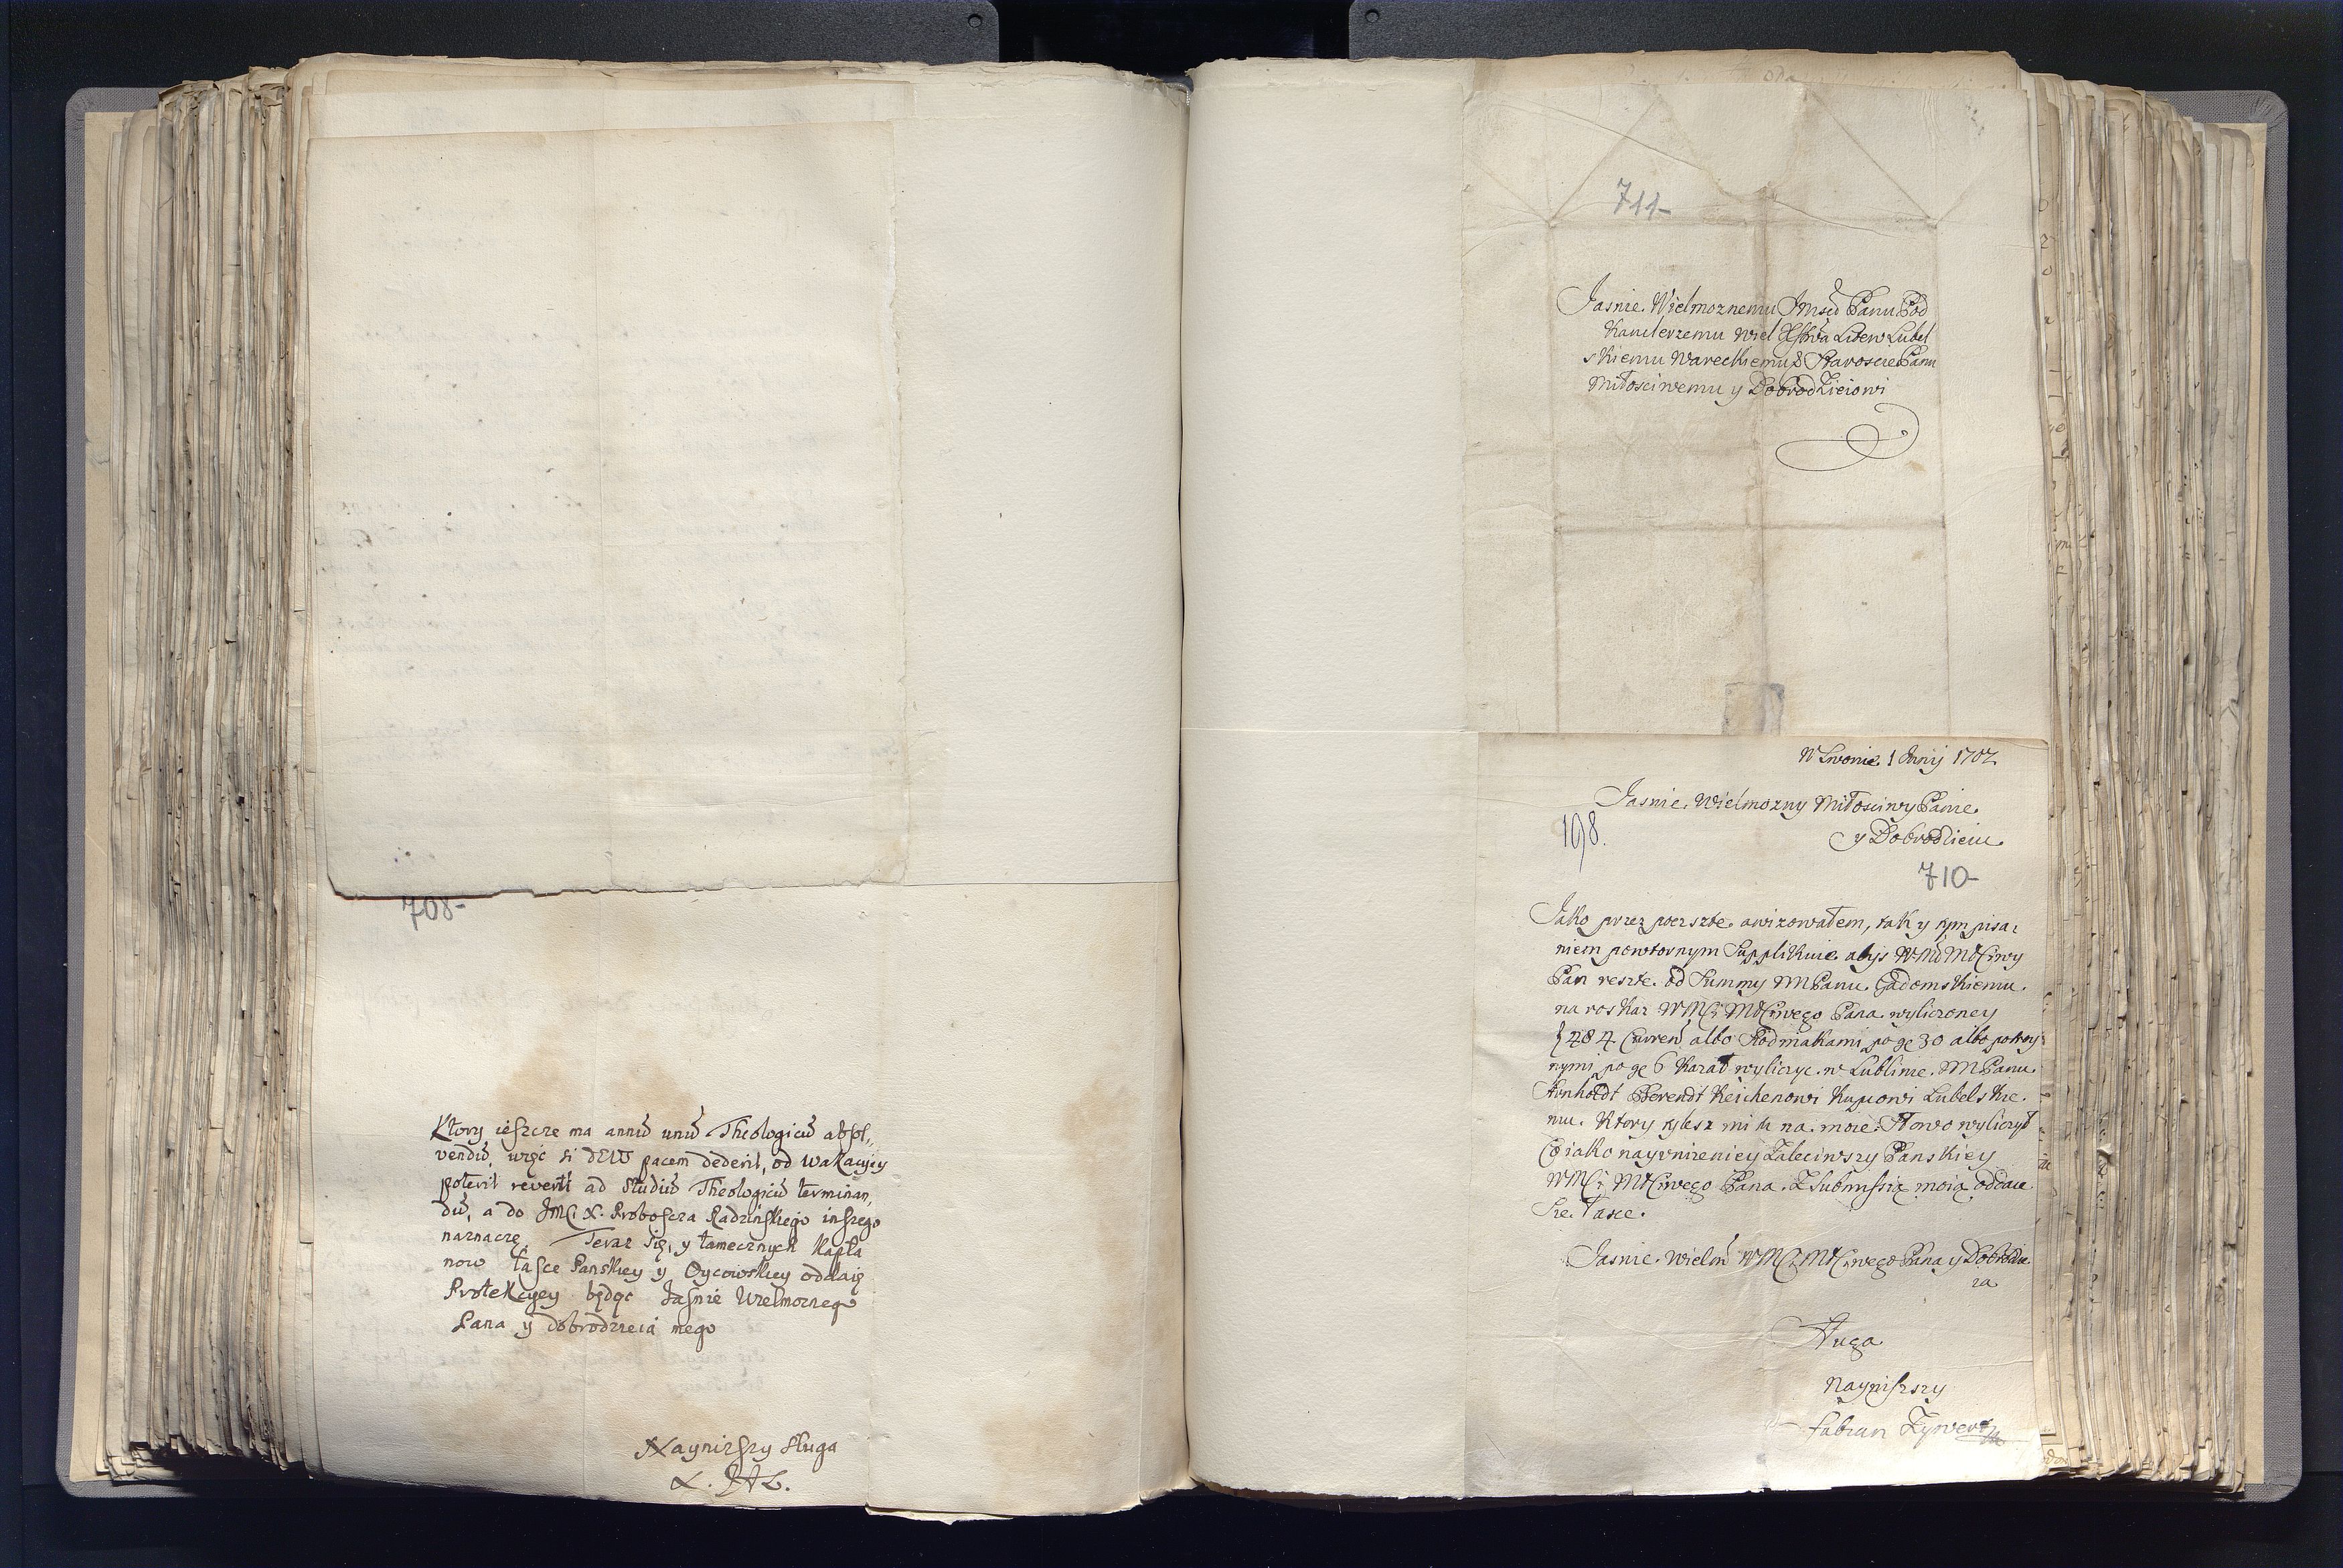 708-
Ktory ieszcze ma annū unū Theologicū absol„
vendū, więc si DEUS pacem dederit, od Wakacyiey
poterit reverti ad Studiū Theologicū terminan„
dū, a do JMCi X. Proboscza Radzinskiego inszego
naznaczę. Teraz się, y tamecznych Kapła
now łasce Panskiey y Oycowskiey oddaię
Protekcyey będąc Jasnie Wielmoznego
Pana y dobrodzieia mego
Naynizszy sługa
711-
Jasnie Wielmoznemu Panu Pod
Kanclerzemu Wiel Litew Lubel
skiemu Wareckiemu & Staroscie Panu
Miłosciwemu y Dobrodzieiowi
W Lwowie 1 Junij 1702
Jasnie Wielmozny Miłosciwy Panie
y Dobrodzieiu
198.
710-
Jako przez poczte awizowałem, tak y tym pisa:
niem powtornym Supplikuie abys
Pan reszte od Summy MPanu Gadomskiemu
na roskaz Pana wyliczoney
484 Curren albo Rodmakami po ge 30 albo
nymi po ge 6 Kazał wyliczyc w Lublinie MPanu
Arnholdt Berendt Reichenowi Kupcowi Lubelskie
mu Ktory tylesz mi tu na moie słowo wyliczył
Co iako nayunizeniey Zaleciwszy Panskiey
Pana Z Submissią moią oddaie
Sie łasce.
Jasnie Wielm Pana y Dobrodzie
ia
Sługa
Nayniszszy
Fabian